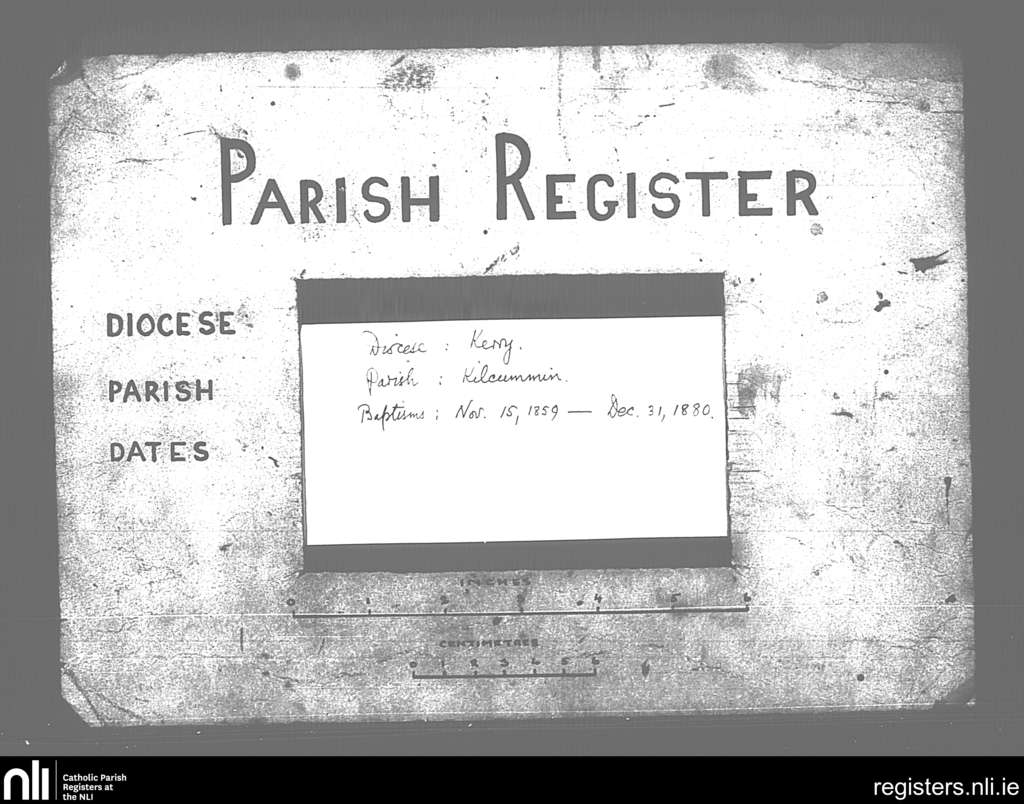 PARISH REGISTER
DIOCESE
PARISH
DATES
Diocese : Kerry.
Parish : Kilcummin.
Baptisms : Nov. 15, 1859 — Dec. 31, 1880.
INCHES
0 1 2 3 4 5 6
CENTIMETRES
0 1 2 3 4 5 6
nli
Catholic Parish
Registers at
the NLI
registers.nli.ie